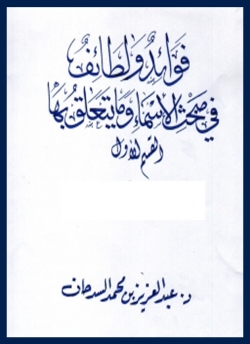 فَوَائِدُ وَلَطَائِفُ
فِي مَبْحَثِ الْأَسْمَاءِ وَمَا يَتَعَلَّقُ بِهَا
القسم الأول
د. عبد العزيز بن محمد السدحان